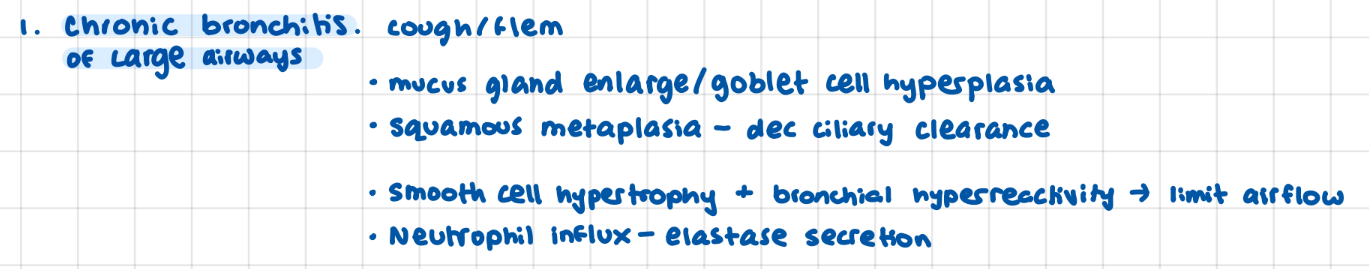 1. Chronic bronchitis. cough/flem
of Large airways
• mucus gland enlarge/goblet cell hyperplasia
• Squamous metaplasia - dec ciliary clearance
• Smooth cell hypertrophy + bronchial hyperreactivity → limit airflow
• Neutrophil influx - elastase secretion